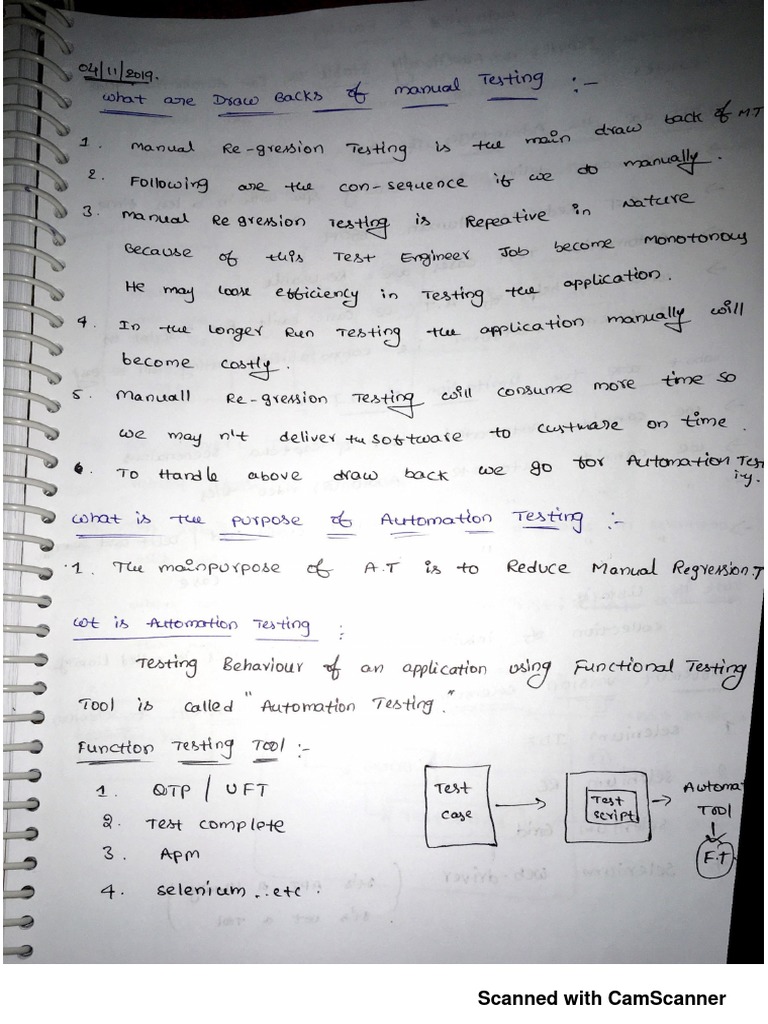 04/11/2019.
What are Draw Backs of manual Testing :-
1. Manual Re-gression Testing is the main draw back of M.T
2. Following are the con-sequence if we do manually.
3. Manual Regression Testing is Repeative in Nature
Because of this Test Engineer Job become monotonous
He may loose efficiency in Testing the application.
4. In the longer Run Testing the application manually will
become costly.
5. Manuall Re-gression Testing will consume more time so
we may n't deliver the software to custmare on time.
6. To Handle above draw back we go for Automation Tes
ig.
What is the purpose of Automation Testing :-
1. The mainpurpose of A.T is to Reduce Manual Regression.T
wt is Automation Testing :
Testing Behaviour of an application using Functional Testing
Tool is called "Automation Testing."
Function Testing Tool :-
1. QTP / UFT
2. Test complete
3. Apm
4. selenium..etc
Test
case
Test
script
Automat
Tool
F.T
Scanned with CamScanner